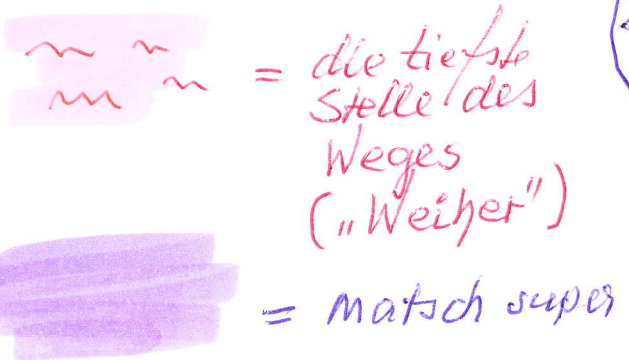 = die tiefste
Stelle des
Weges
("Weiher")
= Matsch super